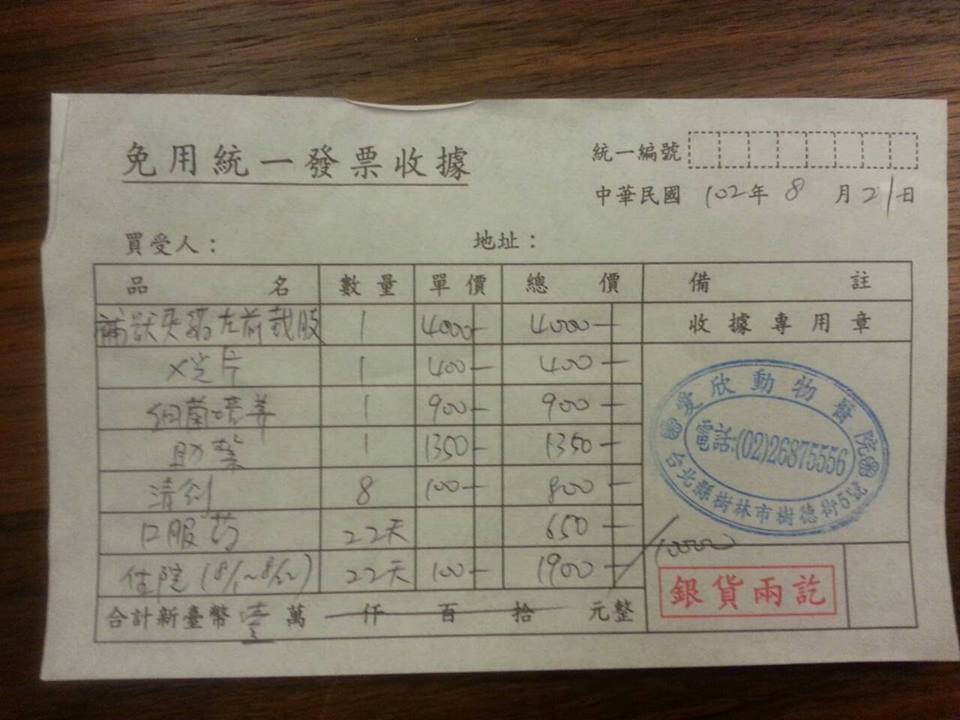 免用統一發票收據
統一編號
中華民國 102年 8 月 21日
買受人： 地址：
品 名 數量 單價 總 價 備 註
捕獸夾 左前截肢 1 4000 4000 收據專用章
X光片 1 400 400
細菌培養 1 900 900
1 1350 1350
清創 8 100 800
口服药 22天 650
住院 (8/1~8/22) 22天 100 1900 10000
合計新臺幣 壹 萬 仟 百 拾 元整
愛欣動物醫院
電話:(02)26875556
台北縣樹林市樹德街5號
銀貨兩訖